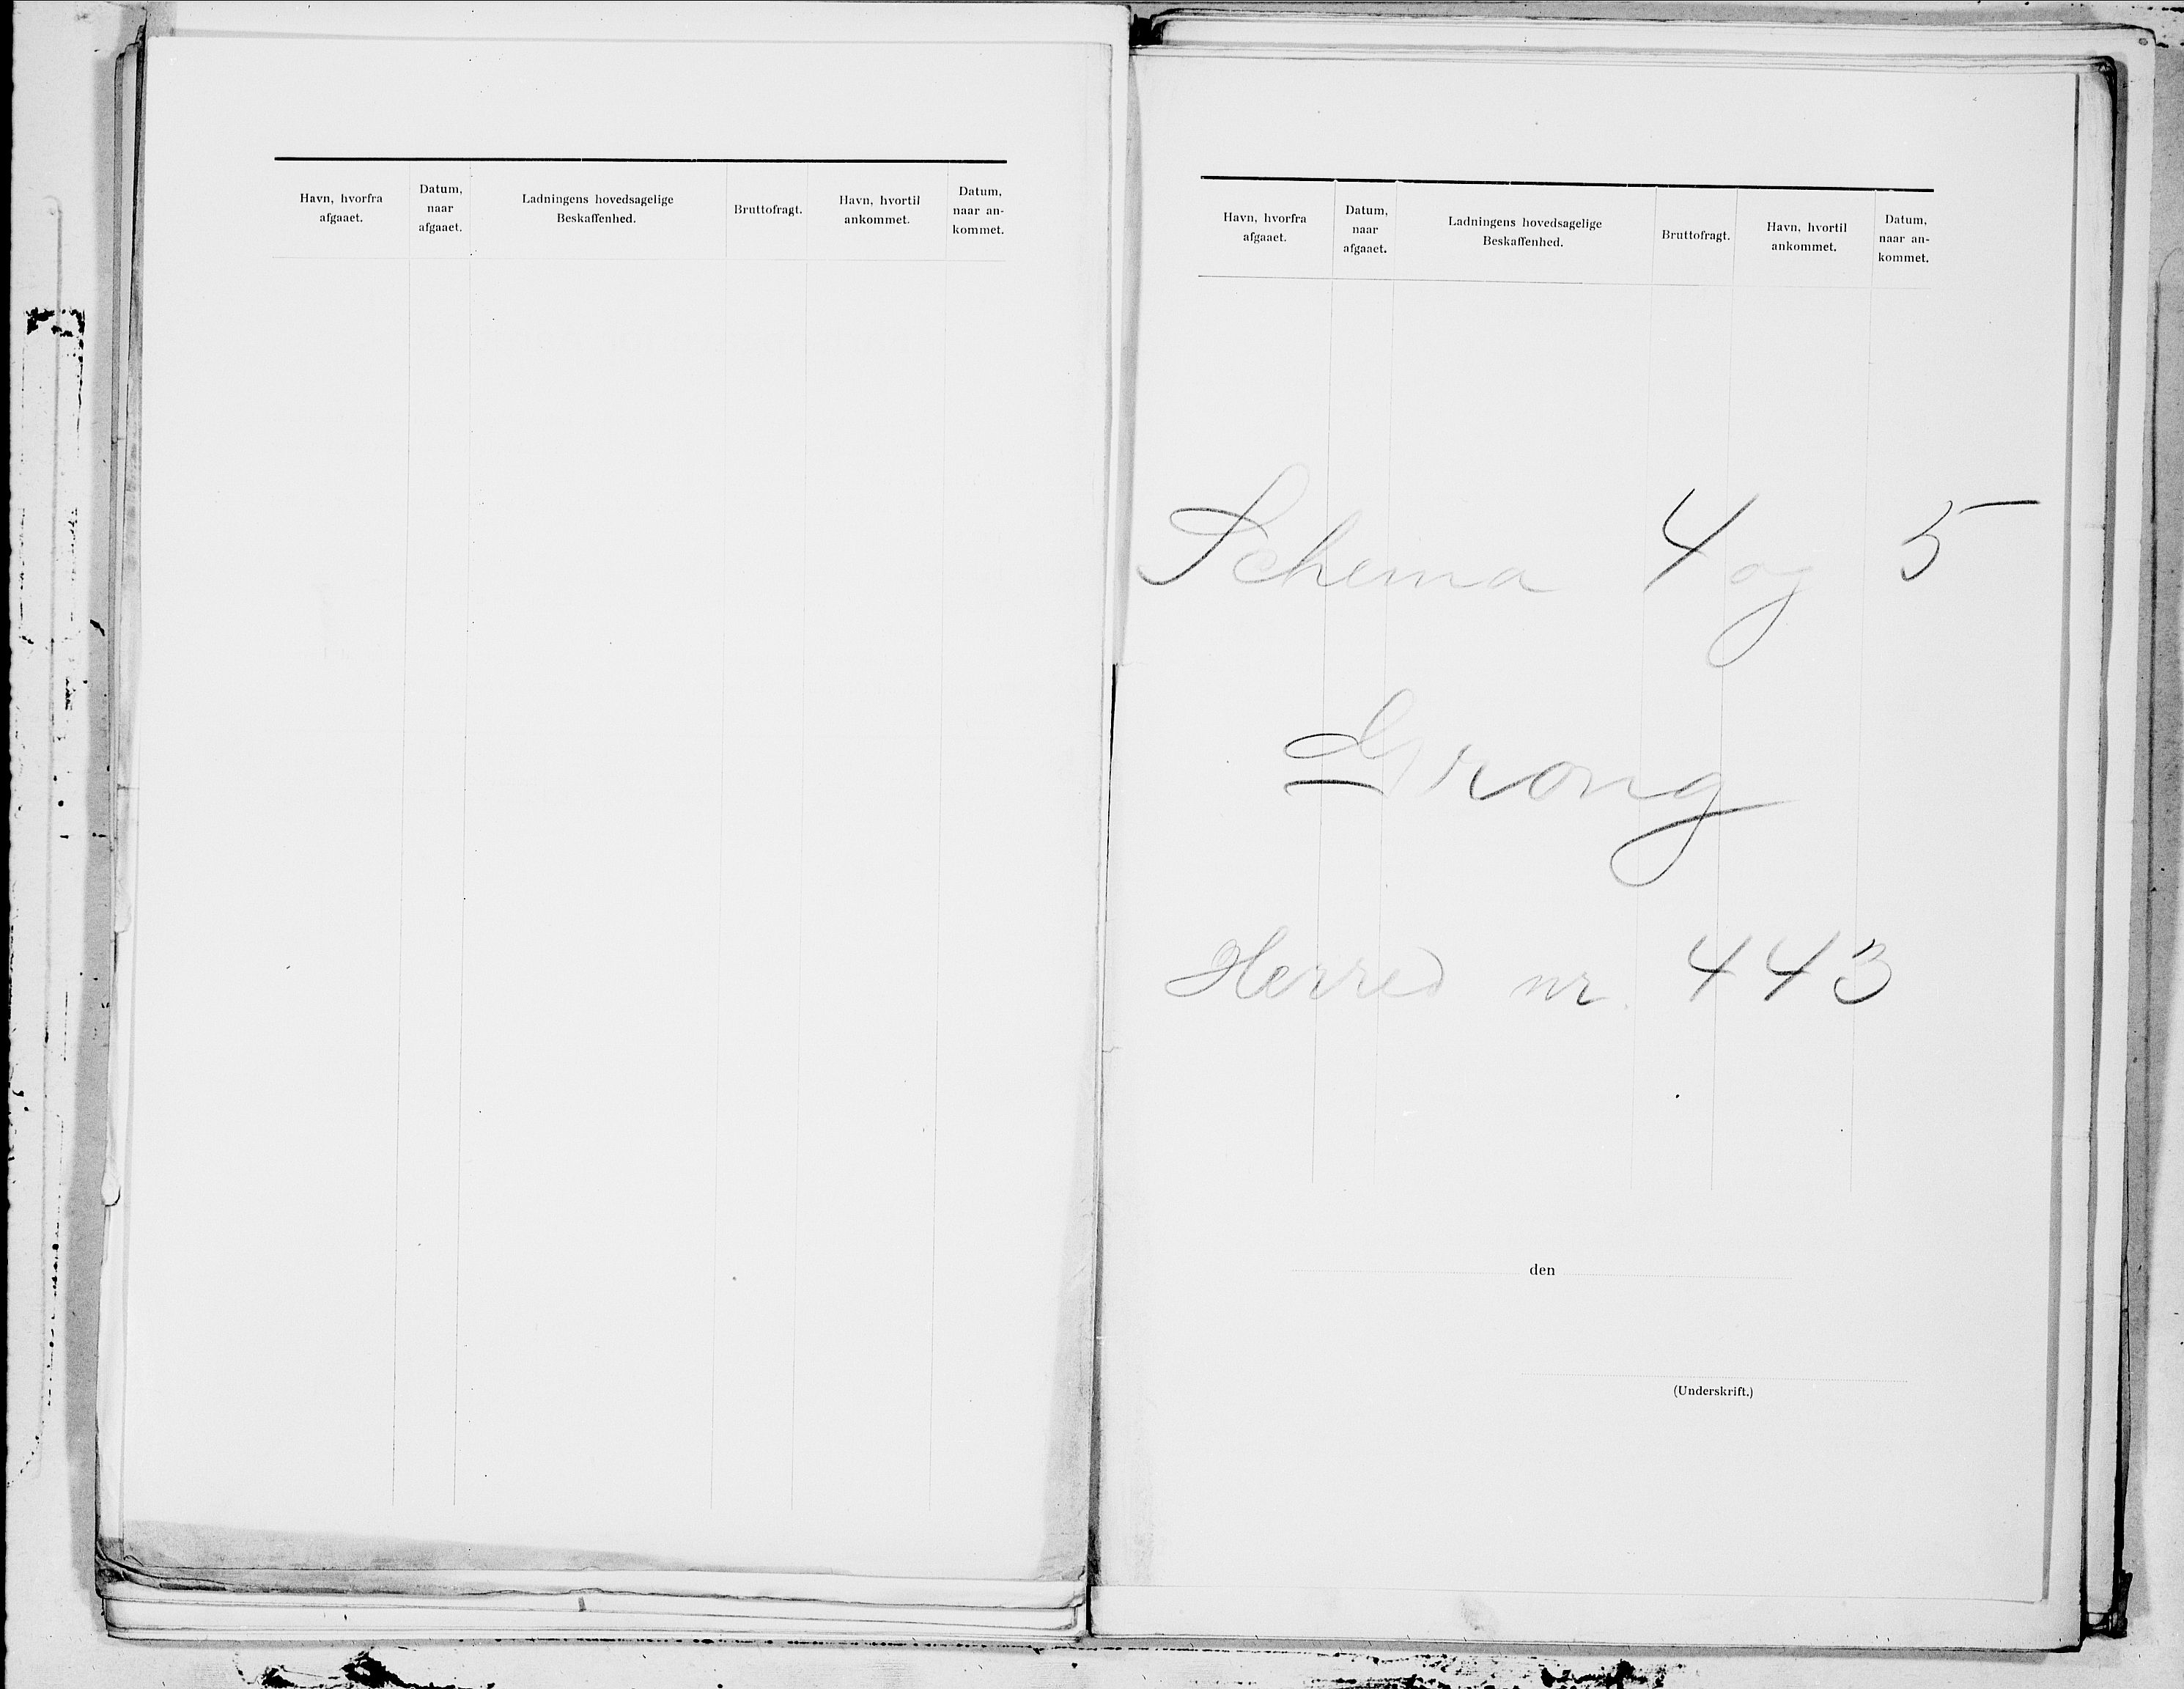 Havn, hvorfra afgaaet.
Datum, naar afgaaet.
Ladningens hovedsagelige Beskaffenhed.
Bruttofragt.
Havn, hvortil ankommet.
Datum, naar an-kommet.
Havn, hvorfra afgaaet.
Datum, naar afgaaet.
Ladningens hovedsagelige Beskaffenhed.
Bruttofragt.
Havn, hvortil ankommet.
Datum, naar an-kommet.
Schema 4 og 5
Grong
Herred nr. 443
den
(Underskrift.)